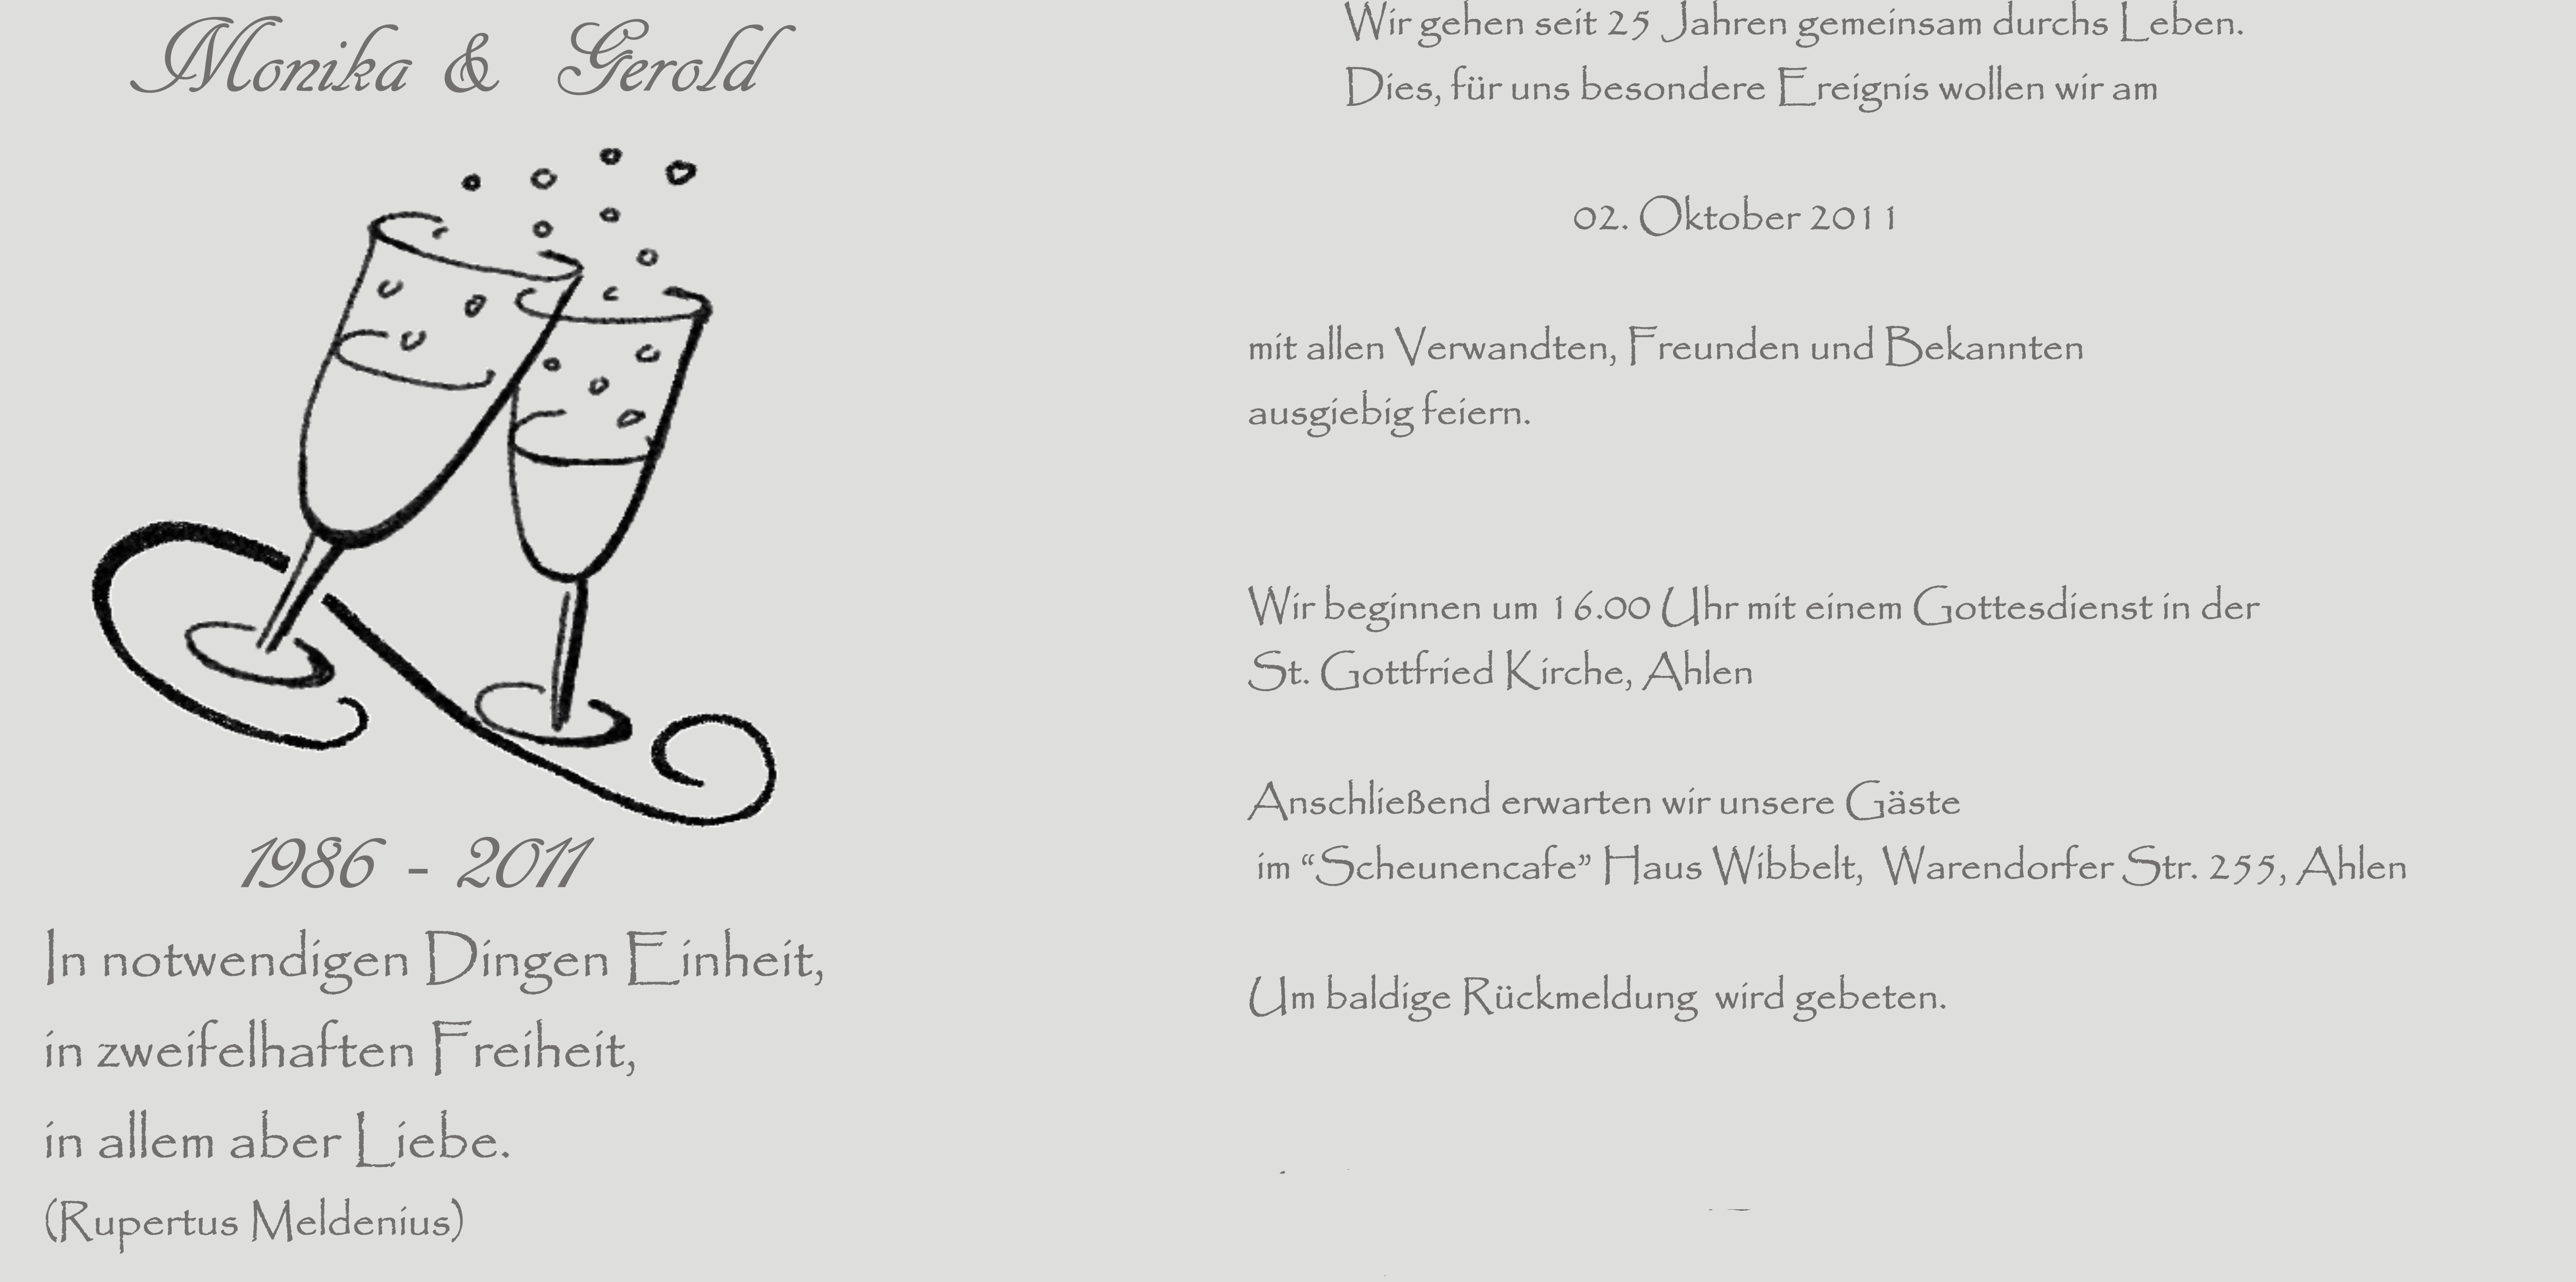 Monika & Gerold
1986 - 2011
In notwendigen Dingen Einheit,
in zweifelhaften Freiheit,
in allem aber Liebe.
(Rupertus Meldenius)
Wir gehen seit 25 Jahren gemeinsam durchs Leben.
Dies, für uns besondere Ereignis wollen wir am
02. Oktober 2011
mit allen Verwandten, Freunden und Bekannten
ausgiebig feiern.
Wir beginnen um 16.00 Uhr mit einem Gottesdienst in der
St. Gottfried Kirche, Ahlen
Anschließend erwarten wir unsere Gäste
im “Scheunencafe” Haus Wibbelt, Warendorfer Str. 255, Ahlen
Um baldige Rückmeldung wird gebeten.